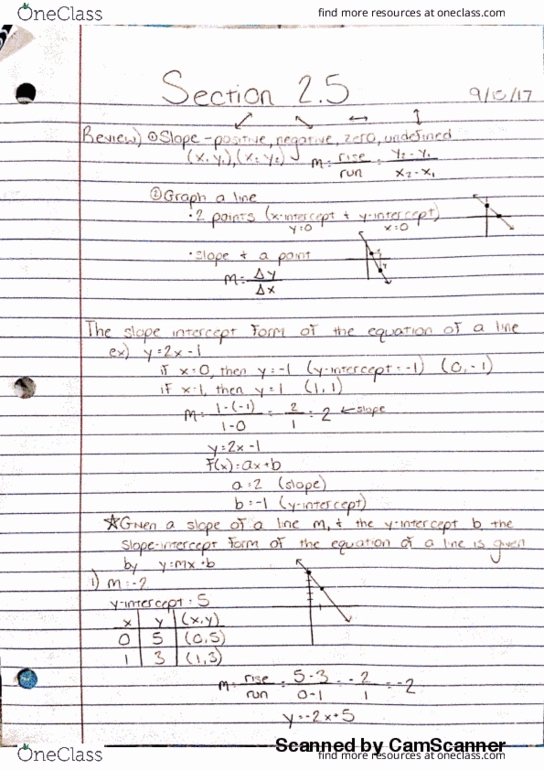 OneClass
find more resources at oneclass.com
Section 2.5
9/10/17
↙ ↘ ↔ ↕
Review) ① Slope - positive, negative, zero, undefined
(x₁ y₁), (x₂ y₂) m = rise/run = y₂ - y₁ / x₂ - x₁
② Graph a line
• 2 points (x-intercept + y-intercept)
y=0 x=0
• slope + a point
m = Δy/Δx
The slope intercept form of the equation of a line
ex) y=2x-1
if x=0, then y=-1 (y-intercept = -1) (0,-1)
if x=1, then y=1 (1,1)
m = 1-(-1)/1-0 = 2/1 = 2 ← slope
y=2x-1
f(x)=ax+b
a=2 (slope)
b=-1 (y-intercept)
☆Given a slope of a line m, + the y-intercept b the
slope-intercept form of the equation of a line is given
by y=mx+b
1) m=-2
y-intercept = 5
x y (x,y)
0 5 (0,5)
1 3 (1,3)
m = rise/run = 5-3/0-1 = -2/1 = -2
y=-2x+5
Scanned by CamScanner
OneClass
find more resources at oneclass.com